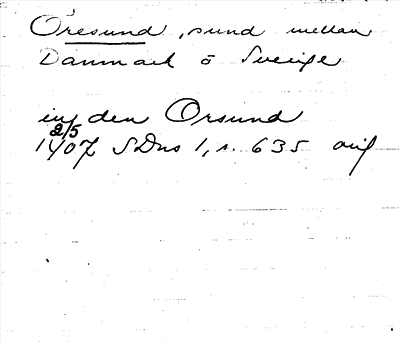 Öresund, sund mellan
Danmark o Sverige
inden Orsund
2/5
1407 SDns 1, s. 635 orig